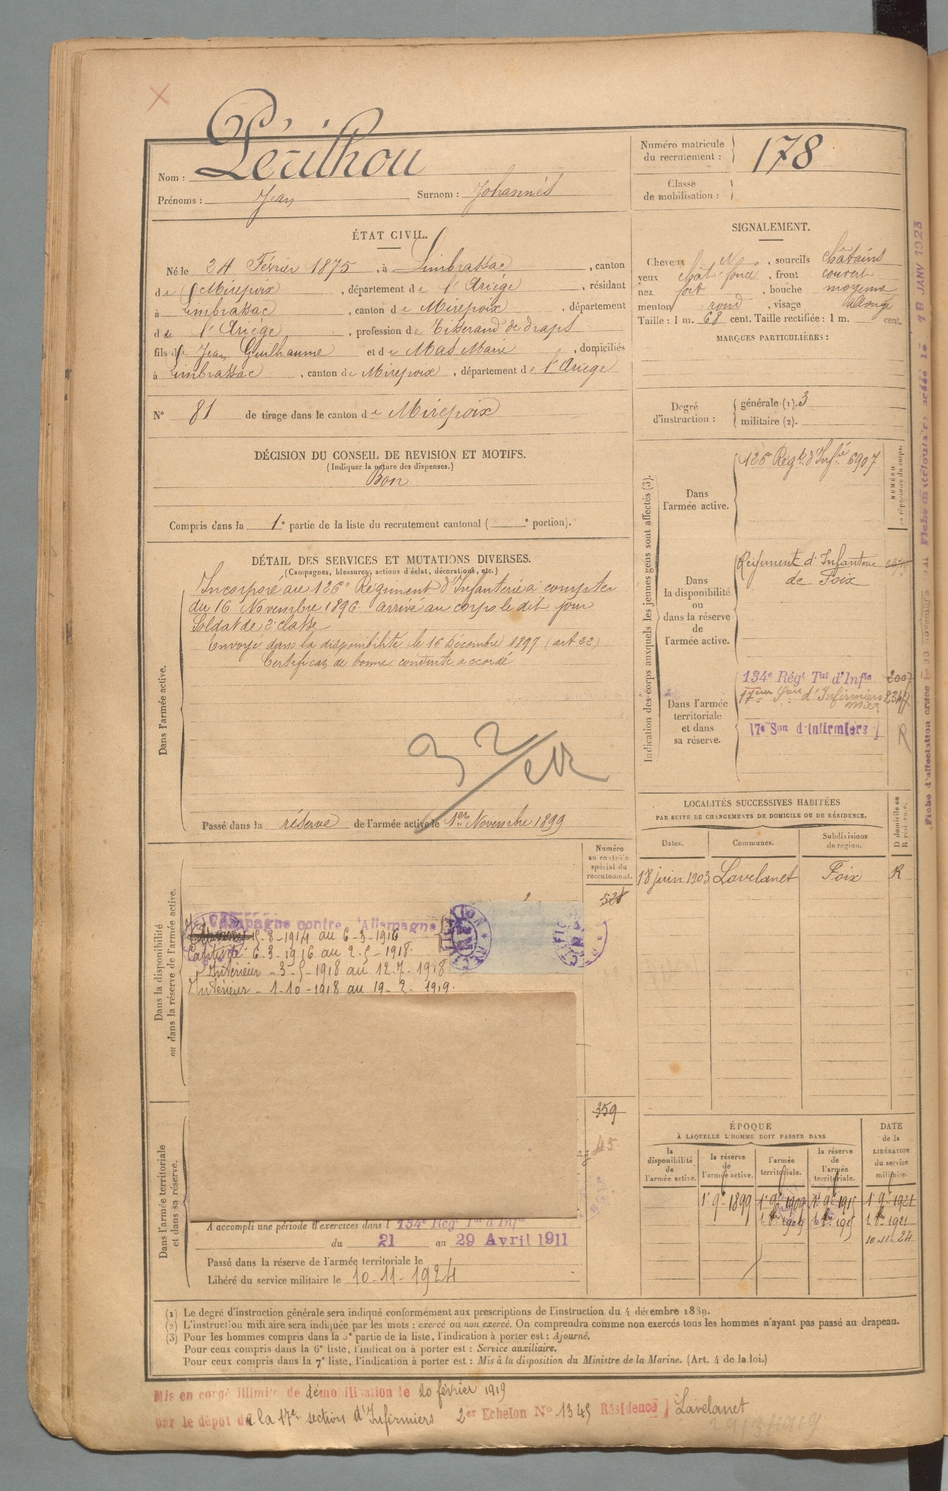 Nom : Périlhou
Prénoms : Jean Surnom : Johannès
Numéro matricule du recrutement : 178
Classe de mobilisation :
ÉTAT CIVIL.
Né le 24 Février 1875, à Limbrassac, canton
de Mirepoix, département de l'Ariège, résidant
à Limbrassac, canton de Mirepoix, département
de l'Ariège, profession de Tisserand de draps
fils de Jean Guilhaume et de Mas Marie, domiciliés
à Limbrassac, canton de Mirepoix, département de l'Ariège
N° 81 de tirage dans le canton de Mirepoix
SIGNALEMENT.
Cheveux N, sourcils châtains
yeux chât foncé, front couvert
nez fort, bouche moyenne
menton rond, visage allongé
Taille : 1 m. 68 cent. Taille rectifiée : 1 m. cent.
MARQUES PARTICULIÈRES :
Degré d'instruction : générale (1). 3
militaire (2).
DÉCISION DU CONSEIL DE REVISION ET MOTIFS.
(Indiquer la nature des dispenses.)
Bon
Compris dans la 1e partie de la liste du recrutement cantonal ( e portion).
DÉTAIL DES SERVICES ET MUTATIONS DIVERSES.
(Campagnes, blessures, actions d'éclat, décorations, etc.)
Dans l'armée active.
Incorporé au 126e Régiment d'Infanterie à compter
du 16 Novembre 1896 arrivé au corps le dit jour
Soldat de 2e classe
Envoyé dans la disponibilité le 16 Décembre 1897 (art 22)
Certificat de bonne conduite accordé
Passé dans la réserve de l'armée active le 1er Novembre 1899
Indication des corps auxquels les jeunes gens sont affectés (3).
Dans l'armée active.
126e Régt d'Infie 6907
Dans la disponibilité ou dans la réserve de l'armée active.
Régiment d'Infanterie
de Foix
Dans l'armée territoriale et dans sa réserve.
134e Régt Tal d'Infie
17ème Son d'Infirmiers
17e Son d'Infirmiers
R
LOCALITÉS SUCCESSIVES HABITÉES
PAR SUITE DE CHANGEMENTS DE DOMICILE OU DE RÉSIDENCE.
Dates. Communes. Subdivisions de région. D domicile ou R résidence.
18 juin 1903 Lavelanet Foix R
Dans la disponibilité ou dans la réserve de l'armée active.
Numéro au contrôle spécial du recrutement.
528
Campagne contre l'Allemagne
8-1914 au 6-3-1916
Captivité 6-3-1916 au 2-5-1918
Intérieur - 3-5-1918 au 12-7-1918
Intérieur - 1-10-1918 au 19-2-1919.
Dans l'armée territoriale et dans sa réserve.
359
A accompli une période d'exercices dans l 134e Régt Tal d'Infie
du 21 au 29 Avril 1911
Passé dans la réserve de l'armée territoriale le
Libéré du service militaire le 10-11-1924
ÉPOQUE
À LAQUELLE L'HOMME DOIT PASSER DANS
DATE de la LIBÉRATION du service militaire.
la disponibilité de l'armée active. la réserve de l'armée active. l'armée territoriale. la réserve de l'armée territoriale.
1er 9e 1899 1er 9e 1909 1er 9e 1915 1er 9e 1921
10-11-24
(1) Le degré d'instruction générale sera indiqué conformément aux prescriptions de l'instruction du 4 décembre 1889.
(2) L'instruction militaire sera indiquée par les mots : exercé ou non exercé. On comprendra comme non exercés tous les hommes n'ayant pas passé au drapeau.
(3) Pour les hommes compris dans la 5e partie de la liste, l'indication à porter est : Ajourné.
Pour ceux compris dans la 6e liste, l'indication à porter est : Service auxiliaire.
Pour ceux compris dans la 7e liste, l'indication à porter est : Mis à la disposition du Ministre de la Marine. (Art. 4 de la loi.)
Mis en congé illimité de démobilisation le 20 février 1919
par le dépôt de la 17e section d'Infirmiers 2er Echelon N° 1345 Résidence Lavelanet